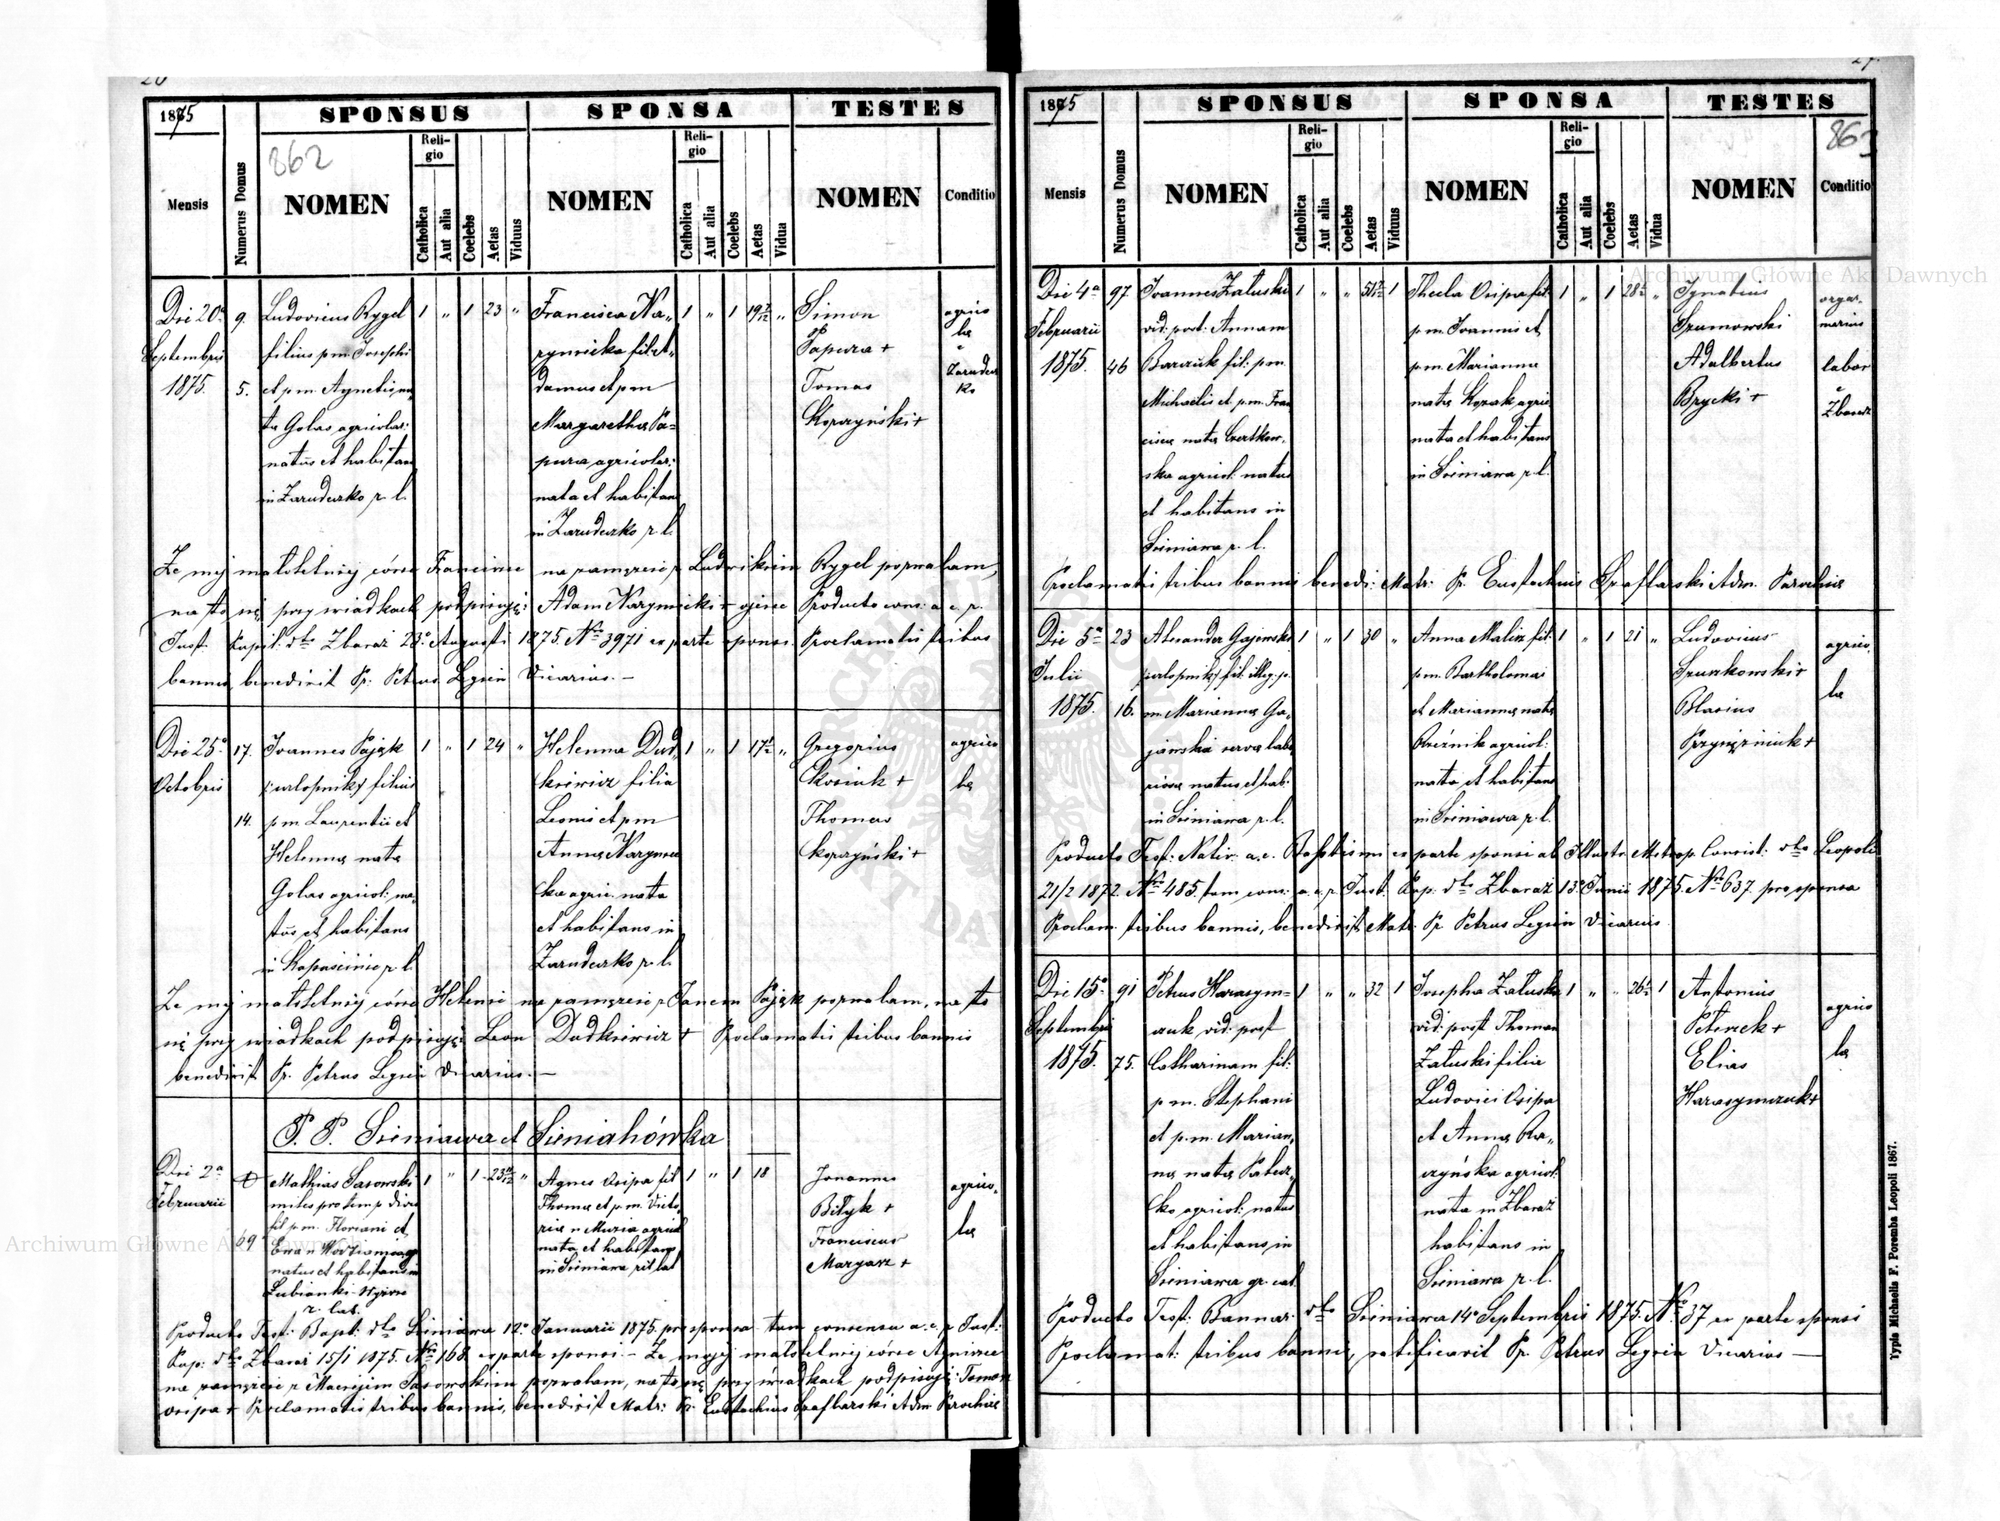 26
1875
SPONSUS
SPONSA
TESTES
Mensis
Numerus Domus
862
NOMEN
Religio
Catholica
Aut alia
Coelebs
Aetas
Viduus
NOMEN
Religio
Catholica
Aut alia
Coelebs
Aetas
Vidua
NOMEN
Conditio
Die 20a
Septembris
1875.
9.
5.
Ludovicus Rygel
filius p.m. Josephi
et p.m. Agnetis na-
ta Golas agricolar:
natus et habitans
in Zarudeczko r. l.
1 " 1 23 "
Francisca Na-
rynicka fil: A-
damus et p.m.
Margaretha Pa-
pura agricolar:
nata et habitans
in Zarudeczko r. l.
1 " 1 19 "
Simon
Papura +
Tomas
Kopczyński +
agrico
la
Zarudecz
ko
Że mej małoletniej córce Francisce na zamęzcie z Ludwikiem Rygel pozwalam,
na to się przy świadkach podpisuję: Adam Narynicki + ojciec Producto cons: a. c. p.
Just. Kapit. dto Zbaraż 23o Augusti 1875 No 3971 ex parte sponsi. Proclamatis tribus
bannis, benedixit Pr. Petrus Legień Vicarius. —
Die 25a
Octobris
17.
14.
Joannes Pająk
/:urlopnik:/ filius
p.m. Laurentii et
Helenna nata
Golas agricol: na-
tus et habitans
in Kapuścińce r. l.
1 " 1 24 "
Helenna Dud-
kiewicz filia
Leonis et p.m.
Anna Narynic
ka agric. nata
et habitans in
Zarudeczko r. l.
1 " 1 17 "
Gregorius
Kosiuk +
Thomas
Kopczyński +
agrico
la
Że mej małoletniej córce Helenie na zamęzcie z Janem Pająk pozwalam, na to
się przy świadkach podpisuję Leon Dudkiewicz + Proclamatis tribus bannis
benedixit Pr. Petrus Legień Vicarius. —
P. P. Sieniawa et Sieniahówka
Die 2a
Februarii
69
Mathias Sasowski
miles pro temp divi
fil p.m. Floriani et
Ewa n
natus et habitans in
Łubianki Wyższe
r. lat.
1 " 1 23 "
Agnes Osipa fil
Thomae et p.m. Victo
ria n Muzia agricol
nata et habitans
in Sieniawa rit lat
1 " 1 18
Joannes
Biłyk +
Franciscus
Margasz +
agrico-
la
Producto Test: Bapt: dto Sieniawa 12o Januarii 1875. pro sponsa tum consensu a. c. p. Just:
Kap: dto Zbaraż 15/1 1875. No 168 ex parte sponsi. — Że mojej małoletniej córce Agnieszce
na zamęzcie z Maciejem Sasowskim pozwalam, na to się przy świadkach podpisuję: Tomasz
Osipa + Proclamatis tribus bannis, benedixit Matr: Pr. Eustachius Graflarski Adm. Parochiae
27
1875
SPONSUS
SPONSA
TESTES
Mensis
Numerus Domus
NOMEN
Religio
Catholica
Aut alia
Coelebs
Aetas
Viduus
NOMEN
Religio
Catholica
Aut alia
Coelebs
Aetas
Vidua
NOMEN
863
Conditio
Die 4a
Februarii
1875.
97.
46
Joannes Załuski
vid: post: Annam
Barczuk fil: p.m.
Michaelis et p.m. Fran
cisca nata Czertkow-
ska agricol: natus
et habitans in
Sieniawa r. l.
1 " " 51 1
Thecla Osipa fil:
p.m. Joannis et
p.m. Marianna
nata Kozak agric
nata et habitans
in Sieniawa r. l.
1 " 1 28 "
Ignatius
Szumowski
Adalbertus
Brycki +
organ-
marius
labor
Zbaraż
Proclamatis tribus bannis bened: Matr: Pr. Eustachius Graflarski Adm. Parochiae
Die 5a
Julii
1875.
23
16.
Alexander Gajewski
/:urlopnik:/ fil: illeg. p.
m. Marianna Ga-
jewska serva labo
riosa natus et hab:
in Sieniawa r. l.
1 " 1 30 "
Anna Malisz fil:
p.m. Bartholomei
et Marianna nata
Kuźnik agricol:
nata et habitans
in Sieniawa r. l.
1 " 1 21 "
Ludovicus
Szunkowski +
Blasius
Przysiężniuk +
agrico.
la
Producto Test: Nativ: a. c. Baptismi ex parte sponsi ab Illustr. Metrop. Consist: dto Leopoli
21/2 1872. No 485. tum cons: a. c. p. Just: Kap: dto Zbaraż 13o Junii 1875. No 637 pro sponsa
Proclam. tribus bannis, benedixit Matr. Pr. Petrus Legień Vicarius.
Die 15a
Septembris
1875.
91
75.
Petrus Harasym-
czuk vid: post
Catharinam fil:
p.m. Stephani
et p.m. Marian-
na nata Palusz-
ko agricol: natus
et habitans in
Sieniawa gr. cat.
1 " " 32 1
Josepha Załuska
vid: post Thomam
Załuski filia
Ludovici Osipa
et Anna Ra-
czyńska agricol:
nata in Zbaraż
habitans in
Sieniawa r. l.
1 " " 26 1
Antonius
Peterek +
Elias
Harasymczuk +
agrico
la
Producto Test: Bannor: dto Sieniawa 14o Septembris 1875. No 37 ex parte sponsi
Proclamat: tribus bannis, ratificavit Pr. Petrus Legień Vicarius —
Typis Michaelis F. Poremba Leopoli 1867.
Archiwum Główne Akt Dawnych
Archiwum Główne Akt Dawnych